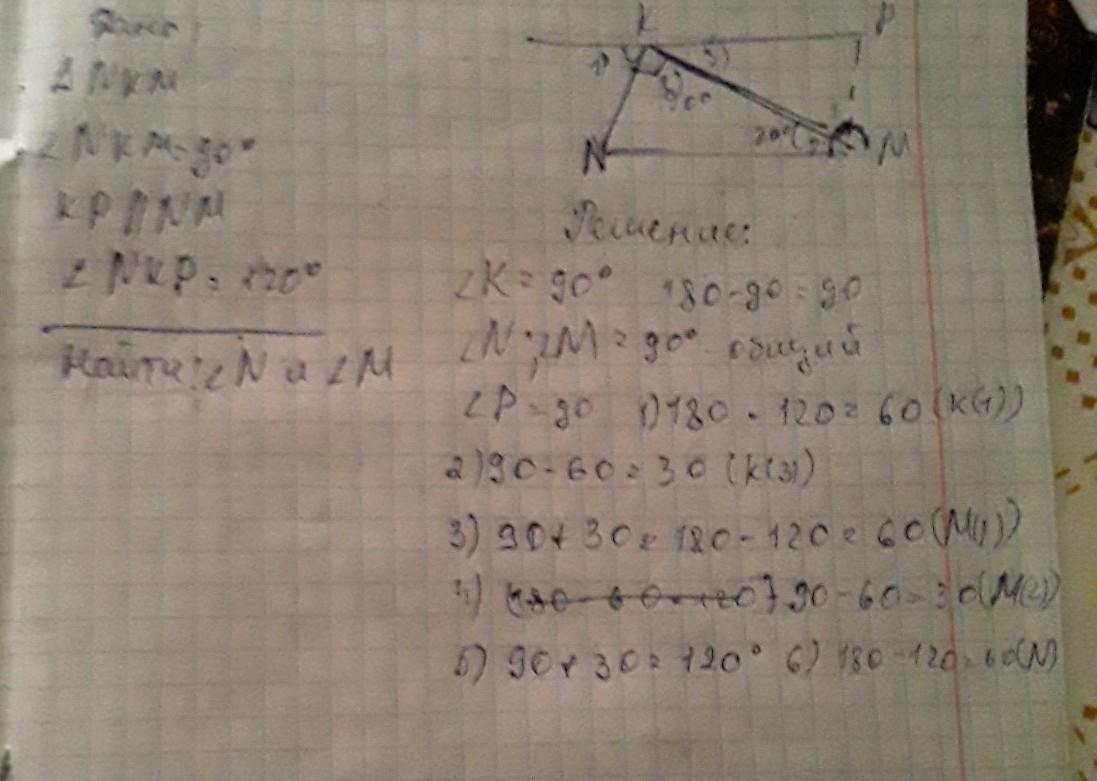 Дано:
Δ NKM
∠ NKM = 90°
KP || NM
∠ NKP = 120°
Найти: ∠N и ∠M
K P
1) 3)
90°
20°
N M
Решение:
∠K = 90° 180-90=90
∠N; ∠M = 90° общий
∠P = 90 1) 180 - 120 = 60 (K(1))
2) 90 - 60 = 30 (K(3))
3) 90 + 30 = 180 - 120 = 60 (M(1))
4) (180 - 60 = 120) 90 - 60 = 30 (M(2))
5) 90 + 30 = 120° 6) 180 - 120 = 60 (N)